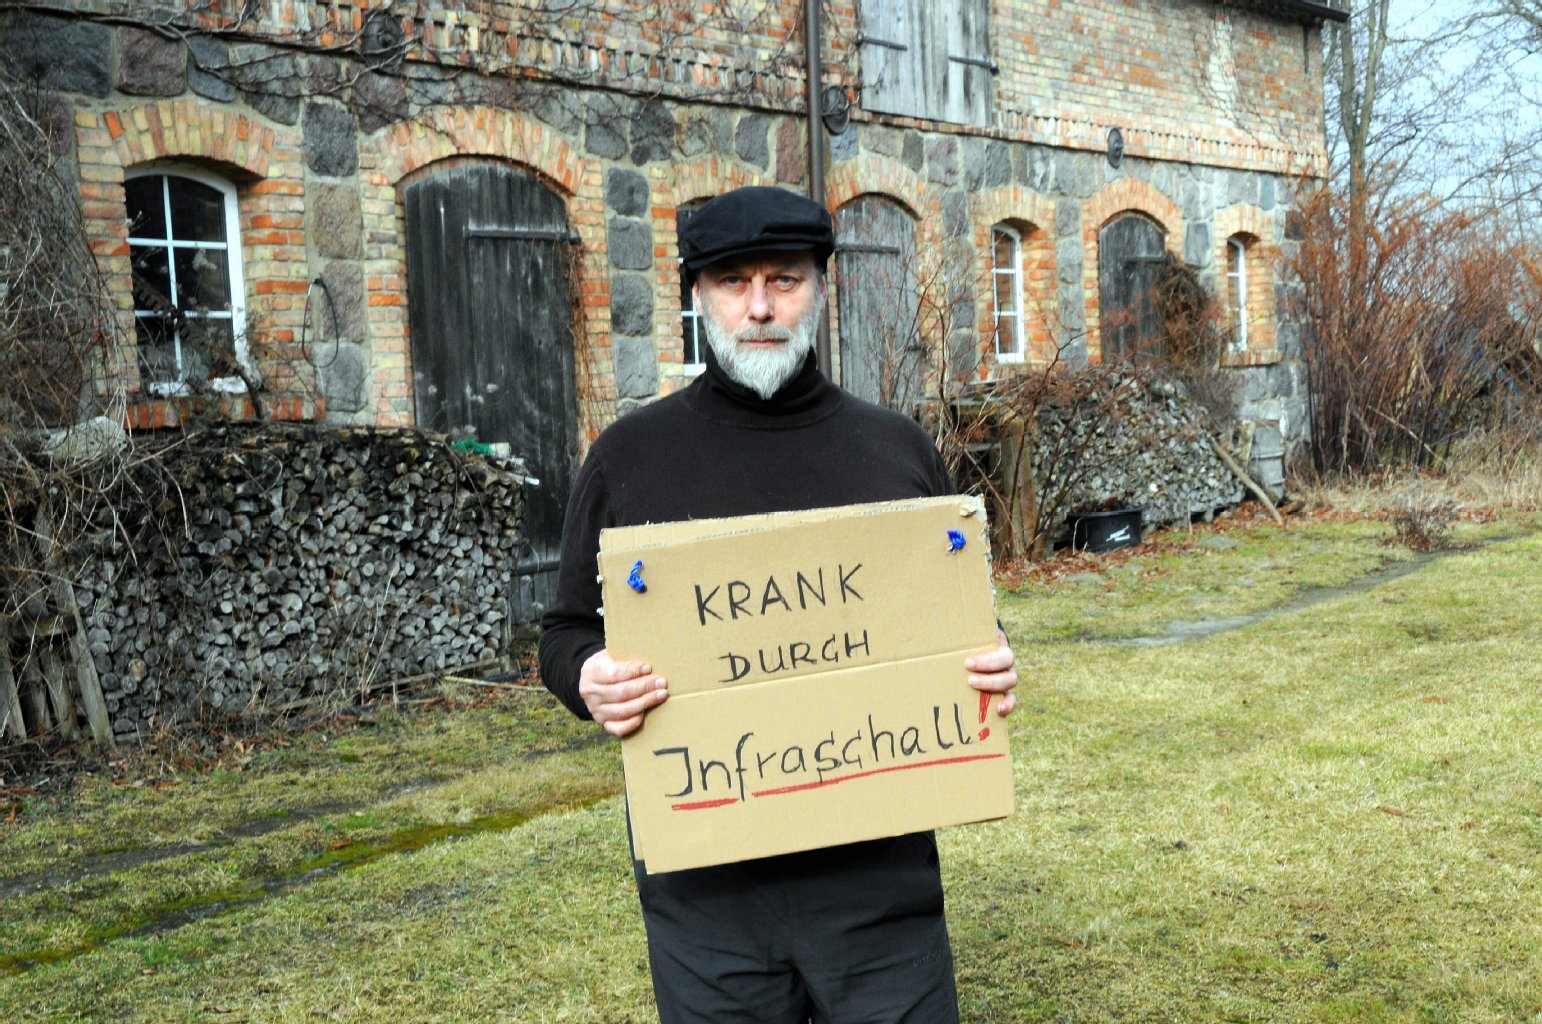 KRANK
DURCH
Infraschall!